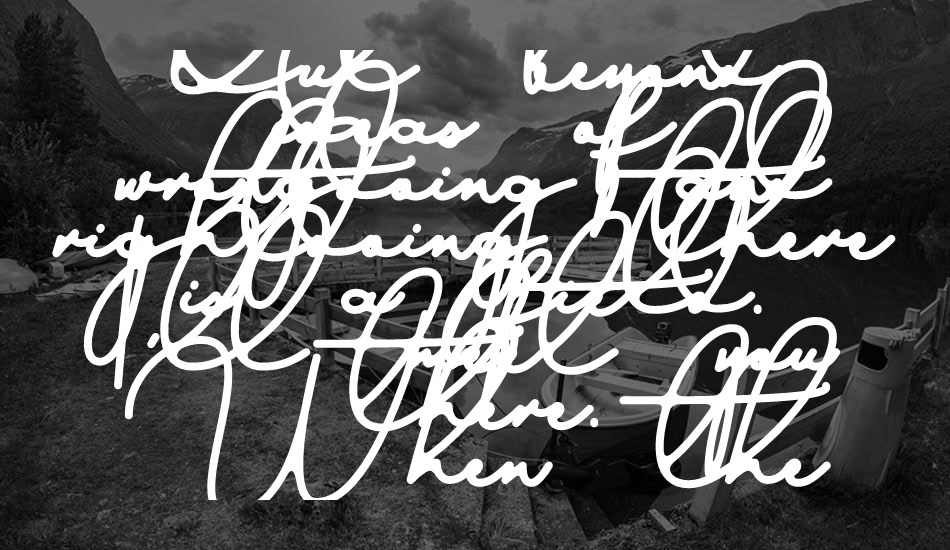 Out beyond
ideas of
wrongdoing and
rightdoing there
is a field.
I'll meet you
there.
When the